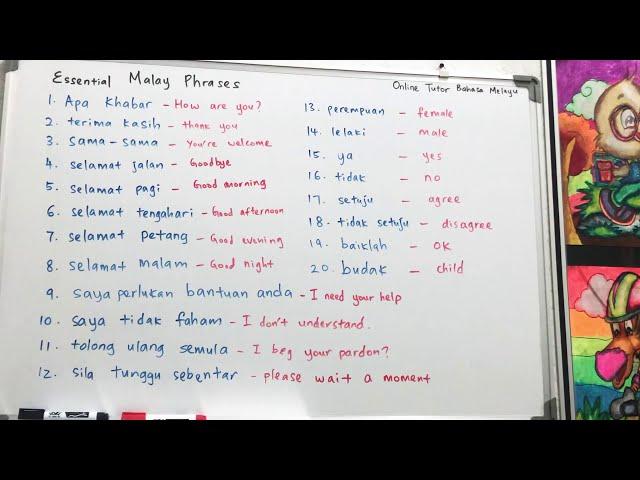 Essential Malay Phrases
Online Tutor Bahasa Melayu
1. Apa Khabar - How are you?
2. terima kasih - thank you
3. sama-sama - You're welcome
4. selamat jalan - Goodbye
5. selamat pagi - Good morning
6. selamat tengahari - Good afternoon
7. selamat petang - Good evening
8. selamat malam - Good night
9. saya perlukan bantuan anda - I need your help
10. saya tidak faham - I don't understand.
11. tolong ulang semula - I beg your pardon?
12. sila tunggu sebentar - please wait a moment
13. perempuan - female
14. lelaki - male
15. ya - yes
16. tidak - no
17. setuju - agree
18. tidak setuju - disagree
19. baiklah - OK
20. budak - child